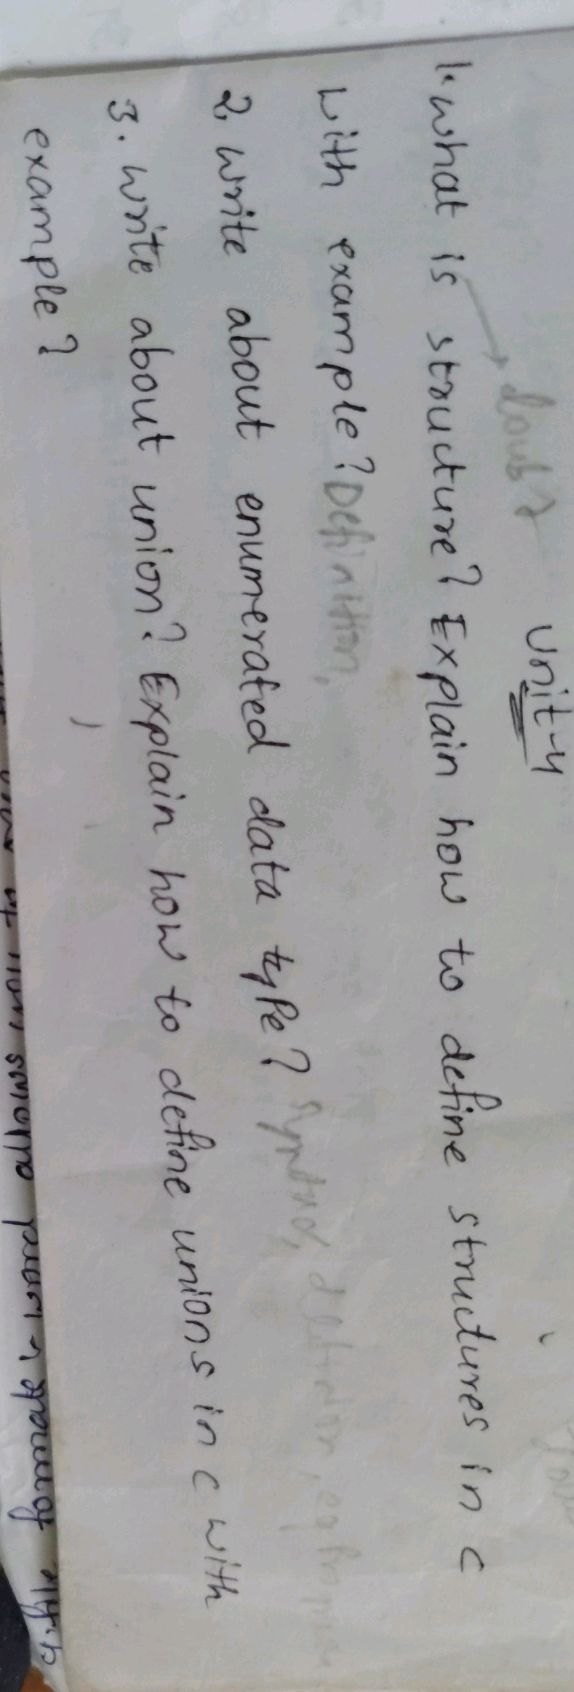 Unit-4
doubt
1. what is structure? Explain how to define structures in c
with example? Definition,
2. write about enumerated data type? syntax, definition,
3. write about union? Explain how to define unions in c with
example?